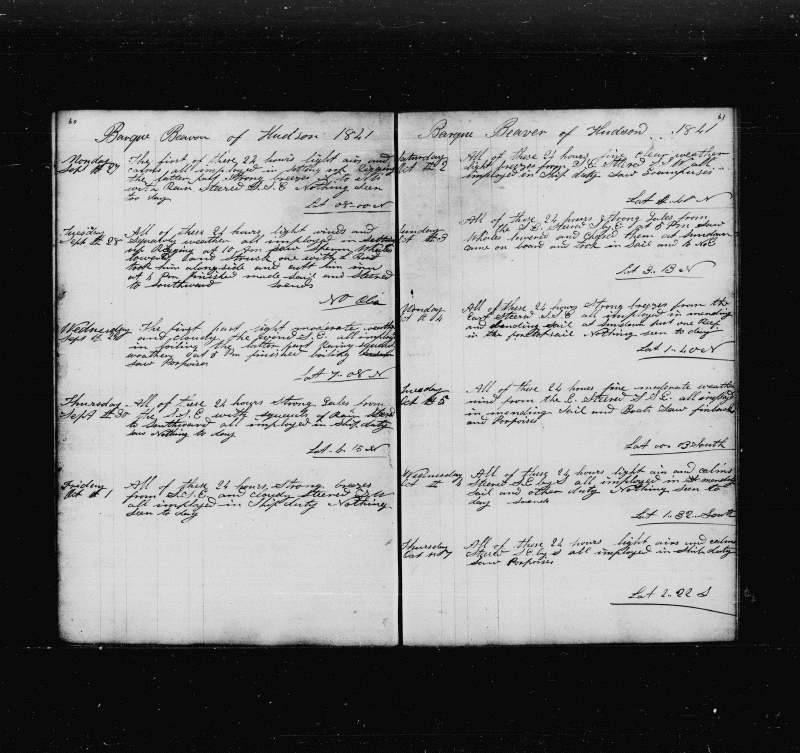 60
Barque Beaver of Hudson 1841
Monday The first of these 24 hours light airs and
Sept th 27 calms all employed in setting up Rigging
the latter part Strong breezes
with Rain Steered S.S.E Nothing Seen
to day
Lat 08-00 N
Tuesday All of these 24 hours light winds and
Sept th 28 Squally weather all employed in setting
up Rigging at 10 Am Saw Sperm Whales
lowered and Struck one with
took him alongside and cutt him inn
at 6 Pm finished made Sail and Steered
to Southward
No Obs
Wednesday The first part light moderate
Sept th 29 and cloudy the wind S.E. all employ
in the latter part Rainy
weather at 8 Pm finished boiling
Saw Porpoises
Lat 7-08 N
Thursday All of these 24 hours Strong Gales from
Sept th 30 the S.S.E with Squalls of Rain Steerd
to Southward all employed in Ship duty
Saw Nothing to day
Lat 6-15 N
Friday All of these 24 hours Strong brezes
Oct th 1 from S.S.E and cloudy Steered S.W
all imployed in Ship duty Nothing
Seen to day
61
Barque Beaver of Hudson 1841
Saturday All of these 24 hours fine clear weather
Oct th 2 light brezes from S.E all
employed in Ship duty Saw Grampuses
Lat 40 N
Sunday All of these 24 hours Strong Gales from
Oct th 3 the S.E. Steerd S by E at 5 Pm Saw
Whales lowered and chased them at Sundown
came on board and took in Sail
Lat 3-13 N
Monday All of these 24 hours Strong brezes from the
Oct th 4 East Steerd S.S.E all imployed in mending
and bending Sail at Sundown put one Reef
in the foretopsail Nothing Seen to day
Lat 1-40 N
Tuesday All of these 24 hours fine moderate weather
Oct th 5 wind from the E. Steered S.S.E. all imployd
in mending Sail and Boats Saw finback
and Porpoises
Lat 00-03 South
Wednesday All of these 24 hours light air and calms
Oct th Steerd S.E by S all imployed in mending
Sail and other duty Nothing Seen to
day
Lat 1-32 South
Thursday All of these 24 hours light airs and calms
Oct th 7 Steerd S.E by S all imployed in Ship duty
Saw Porpoises
Lat 2-22 S